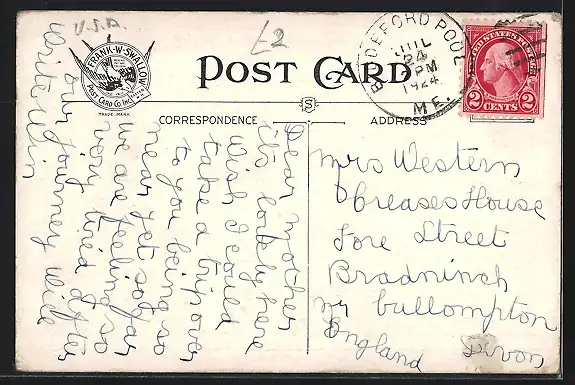 U.S.A.
£2
FRANK·W·SWALLOW
POST CARD CO. INC.
TRADE MARK
POST CARD
BIDDEFORD POOL
JUL
24
PM
1924
ME.
UNITED STATES POSTAGE
2 CENTS 2
CORRESPONDENCE
S
ADDRESS
Dear Mother
its lovely here
wish I could
take a trip over
to you being so
near yet so far
we are feeling so
very tired after
our journey will
write in
Mrs Western
Creases House
Fore Street
Bradninch
nr Cullompton
Devon
England